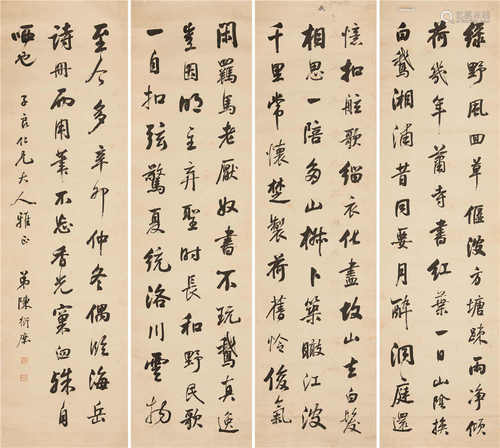 綠野風回草偃波方塘疎雨净傾
荷幾年蕭寺書紅葉一日山陰換
白鵝湘浦昔同要月醉洞庭還
憶扣舷歌緇衣化盡故山去白髮
相思一陪多山椒卜築瞰江波
千里常懷楚製荷舊怜俊氣
閑羈馬老厭奴書不玩鵝真逸
豈因明主弃聖時長和野民歌
一自扣弦驚夏統洛川雲物
至今多辛卯仲冬偶臨海岳
詩冊而用筆不忘香光窠臼殊自
哂也 子良仁兄大人雅正 弟陳衍庶